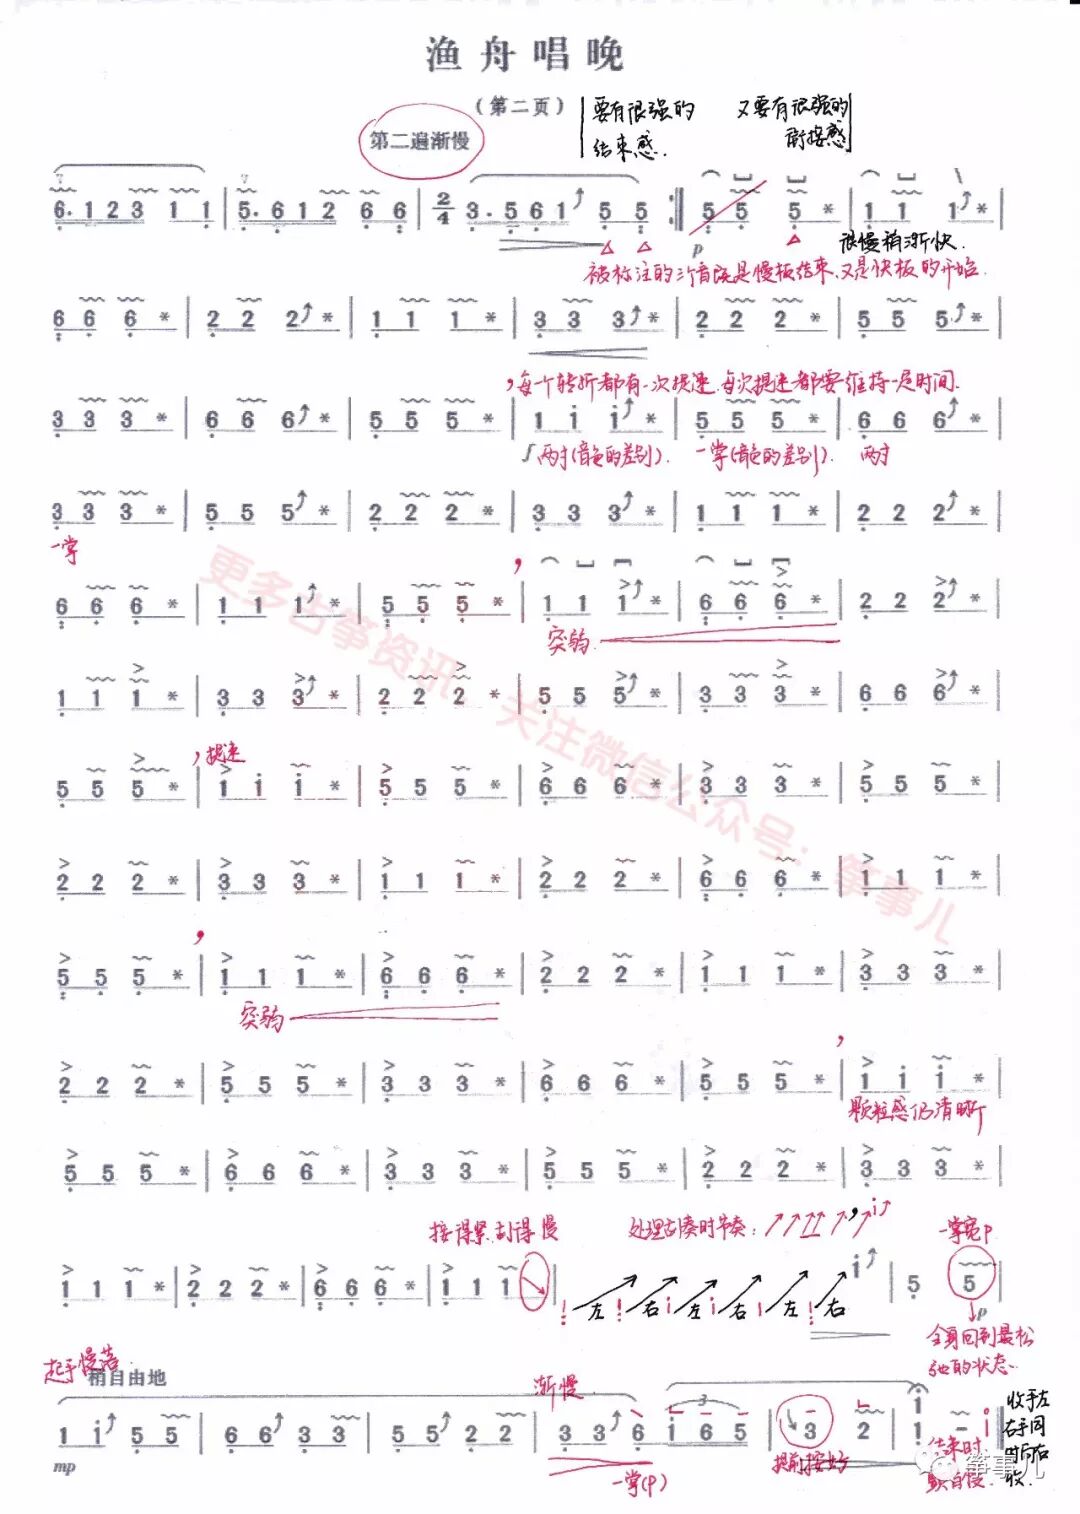 渔舟唱晚
（第二页）
要有很强的
结束感.
又要有很强的
衔接感
第二遍渐慢
6. 1 2 3 1 1 | 5. 6 1 2 6 6 | 2/4 3. 5 6 1 5 5 :‖ 5 5 5 * | 1 1 1 * |
p
很慢稍渐快.
被标注的三个音既是慢板结束,又是快板的开始.
6 6 6 * | 2 2 2 * | 1 1 1 * | 3 3 3 * | 2 2 2 * | 5 5 5 * |
，每个转折都有一次提速.每次提速都要维持一定时间.
3 3 3 * | 6 6 6 * | 5 5 5 * | 1 i i * | 5 5 5 * | 6 6 6 * |
两寸(音色的差别). 一掌(音色的差别). 两寸
3 3 3 * | 5 5 5 * | 2 2 2 * | 3 3 3 * | 1 1 1 * | 2 2 2 * |
一掌
6 6 6 * | 1 1 1 * | 5 5 5 * | 1 1 1 * | 6 6 6 * | 2 2 2 * |
突弱
1 1 1 * | 3 3 3 * | 2 2 2 * | 5 5 5 * | 3 3 3 * | 6 6 6 * |
，提速
5 5 5 * | 1 i i * | 5 5 5 * | 6 6 6 * | 3 3 3 * | 5 5 5 * |
2 2 2 * | 3 3 3 * | 1 1 1 * | 2 2 2 * | 6 6 6 * | 1 1 1 * |
5 5 5 * | 1 1 1 * | 6 6 6 * | 2 2 2 * | 1 1 1 * | 3 3 3 * |
突弱
2 2 2 * | 5 5 5 * | 3 3 3 * | 6 6 6 * | 5 5 5 * | 1 i i * |
颗粒感仍清晰
5 5 5 * | 6 6 6 * | 3 3 3 * | 5 5 5 * | 2 2 2 * | 3 3 3 * |
接得紧,刮得慢
处理占奏时节奏:
一掌宽P
1 1 1 * | 2 2 2 * | 6 6 6 * | 1 1 1 | 左 右 左 右 左 右 i | 5 5 |
p
全身回到最松
弛的状态.
起手慢落
稍自由地
渐慢.
1 i 5 5 | 6 6 3 3 | 5 5 2 2 | 3 3 6 6 | i 6 5 | 3 2 | 1 - i ‖
3
mp
一掌(P)
提前按好
结束时
收手左
右手同
时向右
收.
更多古筝资讯，关注微信公众号：筝事儿
筝事儿